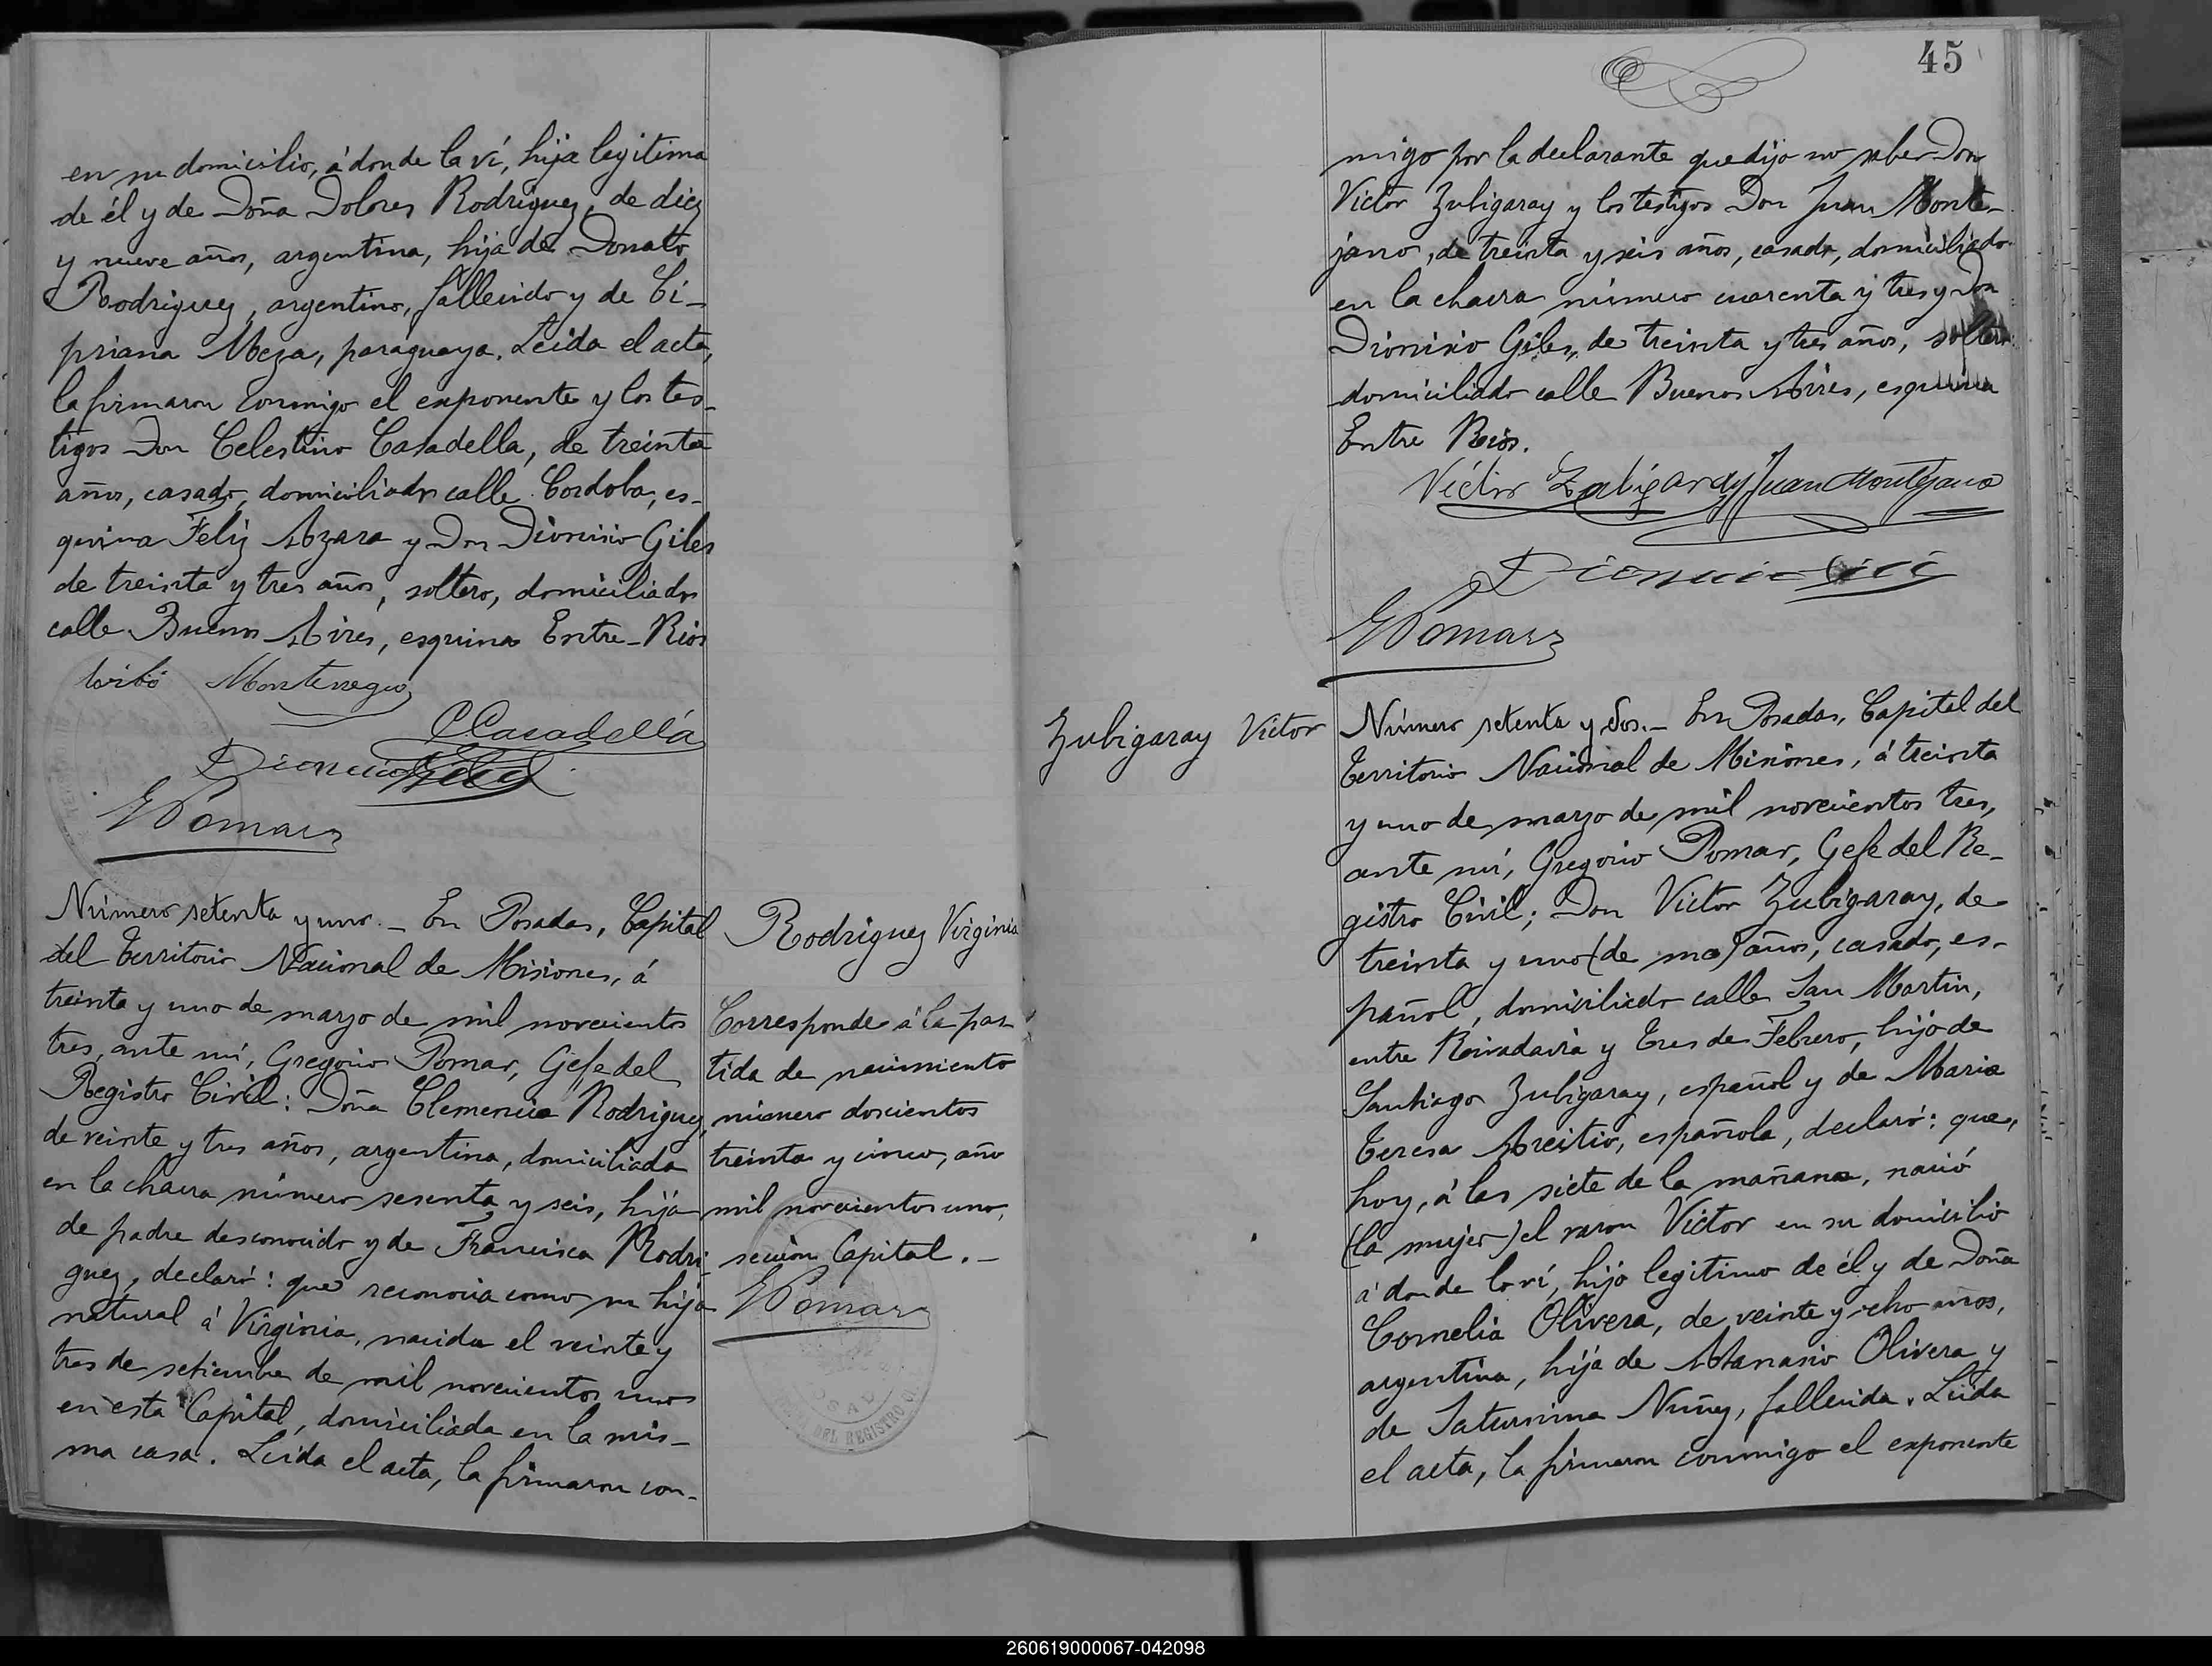 en su domicilio, á donde la ví, hija legitima
de él y de Doña Dolores Rodriguez, de diez
y nueve años, argentina, hija de Donato
Rodriguez, argentino, fallecido y de Ci-
priana Meza, paraguaya. Leida el acta,
la firmaron conmigo el exponente y los tes-
tigos Don Celestino Casadella, de treinta
años, casado, domiciliado calle Cordoba, es-
quina Feliz Azara y Don Dionisio Giles
de treinta y tres años, soltero, domiciliado
calle Buenos Aires, esquina Entre-Rios
Montenegro
C Casadellá
Dionicio Giles
G Pomar
Número setenta y uno.- En Posadas, Capital
del Territorio Nacional de Misiones, á
treinta y uno de marzo de mil novecientos
tres, ante mí, Gregorio Pomar, Gefe del
Registro Civil: Doña Clemencia Rodriguez,
de veinte y tres años, argentina, domiciliada
en la chacra número sesenta y seis, hija
de padre desconocido y de Francisca Rodri-
guez, declaró: que reconocia como su hija
natural á Virginia, nacida el veinte y
tres de setiembre de mil novecientos uno
en esta Capital, domiciliada en la mis-
ma casa. Leida el acta, la firmaron con-
Rodriguez Virginia
Corresponde á la par-
tida de nacimiento
número doscientos
treinta y cinco, año
mil novecientos uno,
sección Capital.-
G Pomar
DEL REGISTRO
45
migo por la declarante que dijo no saber Don
Victor Zubigaray y los testigos Don Juan Monte-
jano, de treinta y seis años, casado, domiciliado
en la chacra número cuarenta y tres y Don
Dionisio Giles, de treinta y tres años, soltero
domiciliado calle Buenos Aires, esquina
Entre Rios.
Victor Zubigaray Juan Montejano
Dionicio Giles
G Pomar
Zubigaray Victor
Número setenta y dos.- En Posadas, Capital del
Territorio Nacional de Misiones, á treinta
y uno de marzo de mil novecientos tres,
ante mí, Gregorio Pomar, Gefe del Re-
gistro Civil; Don Victor Zubigaray, de
treinta y uno (de ma) años, casado, es-
pañol, domiciliado calle San Martin,
entre Rivadavia y Tres de Febrero, hijo de
Santiago Zubigaray, español y de Maria
Teresa Areitio, española, declaró: que,
hoy, á las siete de la mañana, nació
(la mujer) el varon Victor en su domicilio
á donde lo ví, hijo legitimo de él y de Doña
Cornelia Olivera, de veinte y ocho años,
argentina, hija de Atanasio Olivera y
de Saturnina Nuñez, fallecida. Leida
el acta, la firmaron conmigo el exponente
260619000067-042098